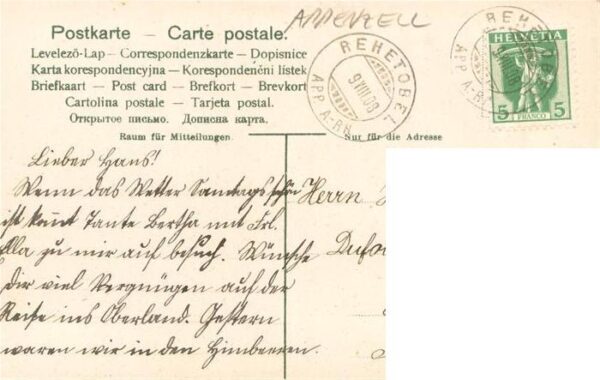 APPENZELL
Postkarte – Carte postale.
Levelező-Lap – Correspondenzkarte – Dopisnice
Karta korespondencyjna – Korespondenční lístek
Briefkaart – Post card – Brefkort – Brevkort
Cartolina postale – Tarjeta postal.
Открытое письмо. Дописна карта.
Raum für Mitteilungen.
Nur für die Adresse
REHETOBEL
9.VIII.08
APP A.-RH.
HELVETIA
5 5
FRANCO
REHETOBEL
APP A.-RH.
Lieber Hans!
Wenn das Wetter Samstags schön
ist kommt Tante Bertha mit Frl.
Ella zu mir auf besuch. Wünsche
Dir viel Vergnügen auf der
Reise ins Oberland. Gestern
waren wir in den Himbeeren.
Herrn
Dufo